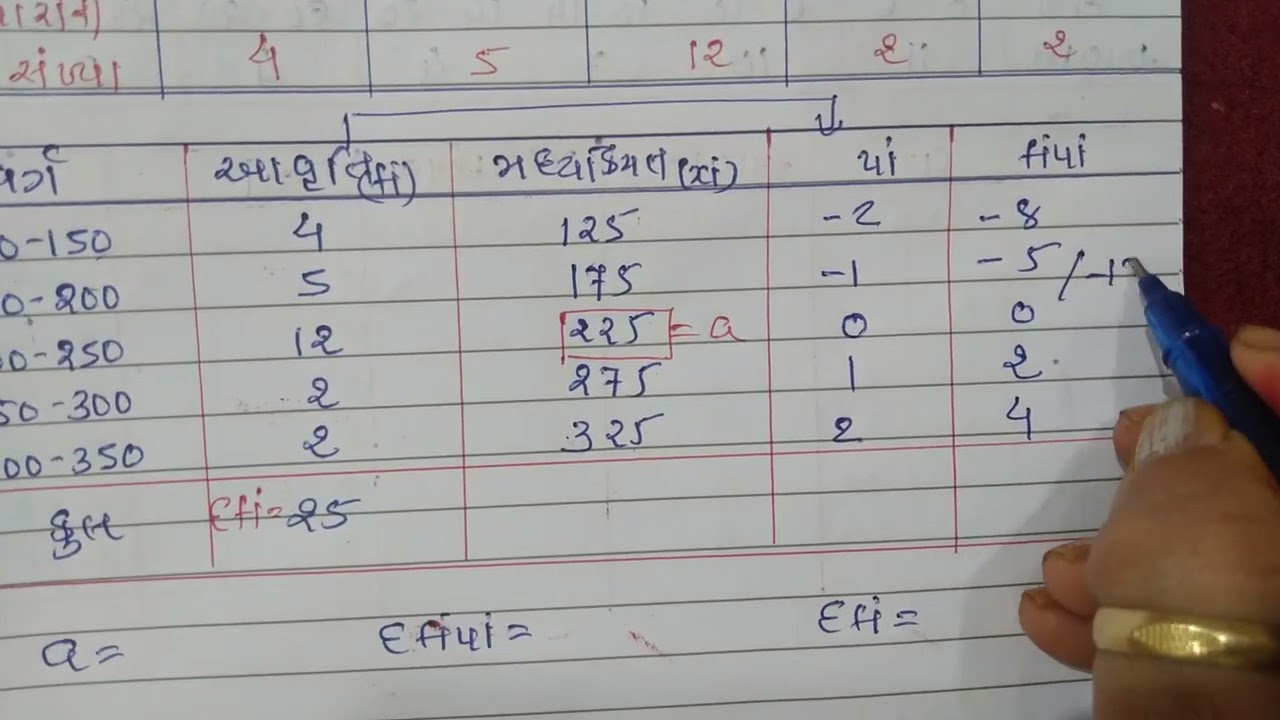 સંખ્યા 4 5 12 2 2
વર્ગ આવૃત્તિ(fi) મધ્યકિંમત(xi) ui fiui
0-150 4 125 -2 -8
0-200 5 175 -1 -5 /-1
00-250 12 225 = a 0 0
50-300 2 275 1 2
00-350 2 325 2 4
કુલ Σfi=25
a= Σfiui= Σfi=